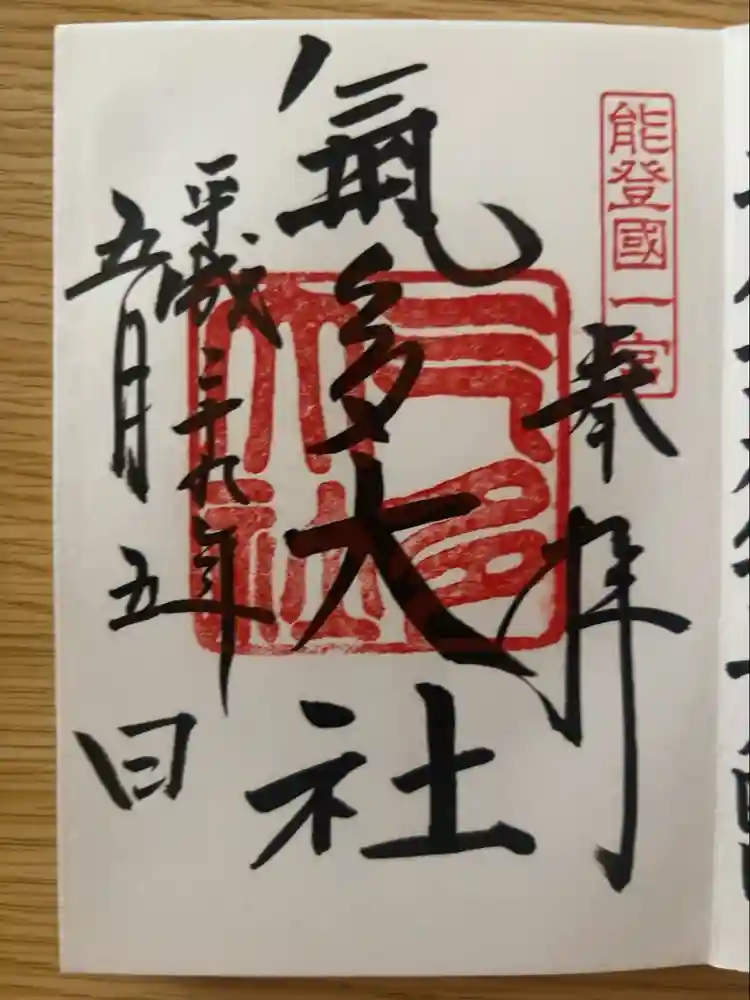 能登國一宮
奉拝
氣多大社
气多大社
平成二十九年
五月五日